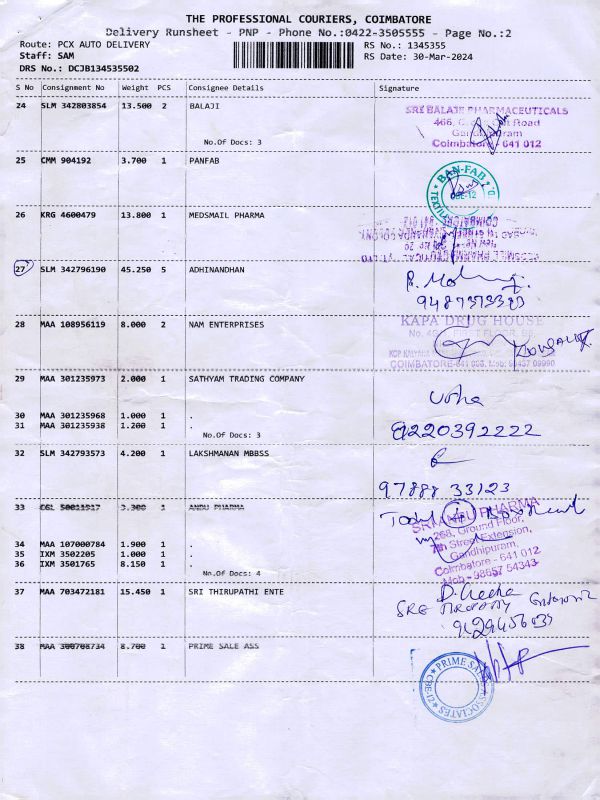 THE PROFESSIONAL COURIERS, COIMBATORE
Delivery Runsheet - PNP - Phone No.:0422-3505555 - Page No.:2
Route: PCX AUTO DELIVERY RS No.: 1345355
Staff: SAM RS Date: 30-Mar-2024
DRS No.: DCJB134535502
S No Consignment No Weight PCS Consignee Details Signature
24 SLM 342803854 13.500 2 BALAJI
SRE BALAJI PHARMACEUTICALS
466, Road
Gandhipuram
Coimbatore - 641 012
No.Of Docs: 3
25 CMM 904192 3.700 1 PANFAB
BAN-FAB
CBE-12
26 KRG 4600479 13.800 1 MEDSMAIL PHARMA
27 SLM 342796190 45.250 5 ADHINANDHAN
28 MAA 108956119 8.000 2 NAM ENTERPRISES
KAPA DRUG HOUSE
29 MAA 301235973 2.000 1 SATHYAM TRADING COMPANY
Usha
30 MAA 301235968 1.000 1 .
31 MAA 301235938 1.200 1 .
9220392222
No.Of Docs: 3
32 SLM 342793573 4.200 1 LAKSHMANAN MBBSS
97888 33123
33 CGL 50011517 3.300 1 ANDU PHARMA
SRI ANBU PHARMA
268, Ground Floor,
7th Street Extension,
Gandhipuram,
Coimbatore - 641 012
Mob - 98657 54343
34 MAA 107000784 1.900 1 .
35 IXM 3502205 1.000 1 .
36 IXM 3501765 8.150 1 .
No.Of Docs: 4
37 MAA 703472181 15.450 1 SRI THIRUPATHI ENTE
38 MAA 300708734 8.700 1 PRIME SALE ASS
PRIME SALE ASSOCIATES
CBE-12